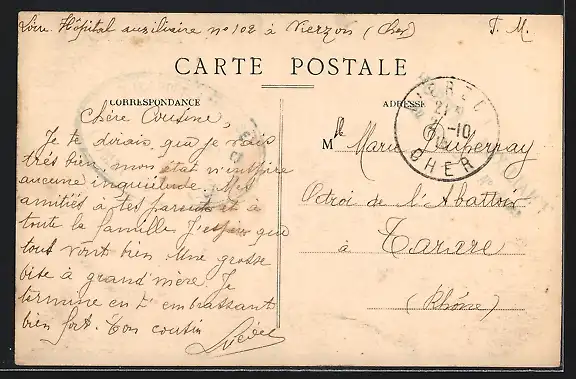 Hôpital auxiliaire n° 102 à Vierzon (Cher) F. M.
CARTE POSTALE
CORRESPONDANCE
ADRESSE
Chère Cousine,
Je te dirais que je vais
très bien mon état n'inspire
aucune inquiétude. Mes
amitiés à tes parents et à
toute la famille J'espère que
tout vont bien Une grosse
bise à grand'mère. Je
termine en t'embrassant
bien fort. Ton cousin
Mlle Marie
Octroi de l'Abattoir
à Tarare
(Rhône)
CHER